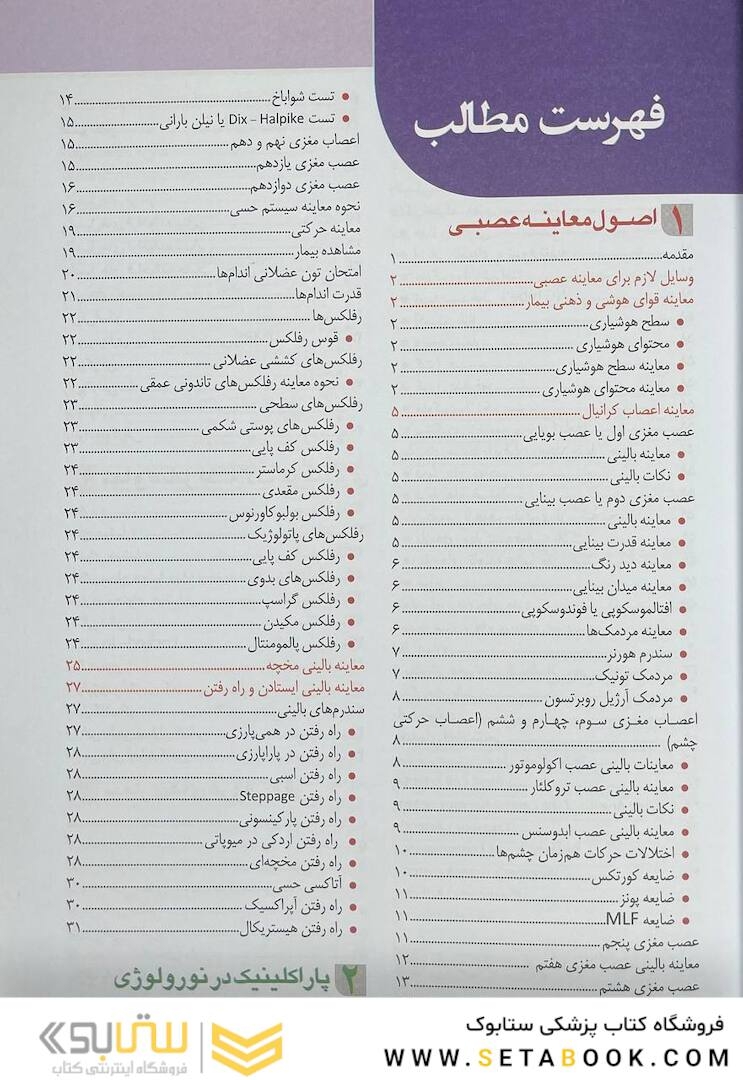 فهرست مطالب
۱ اصول معاینه عصبی
مقدمه ۱
وسایل لازم برای معاینه عصبی ۲
معاینه قوای هوشی و ذهنی بیمار ۲
• سطح هوشیاری ۲
• محتوای هوشیاری ۲
• معاینه سطح هوشیاری ۲
• معاینه محتوای هوشیاری ۲
معاینه اعصاب کرانیال ۵
عصب مغزی اول یا عصب بویایی ۵
• معاینه بالینی ۵
• نکات بالینی ۵
عصب مغزی دوم یا عصب بینایی ۵
• معاینه بالینی ۵
• معاینه قدرت بینایی ۵
• معاینه دید رنگ ۶
• معاینه میدان بینایی ۶
• افتالموسکوپی یا فوندوسکوپی ۶
• معاینه مردمک‌ها ۶
• سندرم هورنر ۷
• مردمک تونیک ۷
• مردمک آرژیل روبرتسون ۸
اعصاب مغزی سوم، چهارم و ششم (اعصاب حرکتی
چشم) ۸
• معاینات بالینی عصب اکولوموتور ۸
• معاینه بالینی عصب تروکلئار ۹
• نکات بالینی ۹
• معاینه بالینی عصب ابدوسنس ۹
• اختلالات حرکات هم‌زمان چشم‌ها ۱۰
• ضایعه کورتکس ۱۰
• ضایعه پونز ۱۱
• ضایعه MLF ۱۱
عصب مغزی پنجم ۱۱
معاینه بالینی عصب مغزی هفتم ۱۲
عصب مغزی هشتم ۱۳
• تست شواباخ ۱۴
• تست Dix – Halpike یا نیلن بارانی ۱۵
اعصاب مغزی نهم و دهم ۱۵
عصب مغزی یازدهم ۱۵
عصب مغزی دوازدهم ۱۶
نحوه معاینه سیستم حسی ۱۶
معاینه حرکتی ۱۹
مشاهده بیمار ۱۹
امتحان تون عضلانی اندام‌ها ۲۰
قدرت اندام‌ها ۲۱
رفلکس‌ها ۲۲
• قوس رفلکس ۲۲
رفلکس‌های کششی عضلانی ۲۲
• نحوه معاینه رفلکس‌های تاندونی عمقی ۲۲
رفلکس‌های سطحی ۲۳
• رفلکس‌های پوستی شکمی ۲۳
• رفلکس کف پایی ۲۳
• رفلکس کرماستر ۲۴
• رفلکس مقعدی ۲۴
• رفلکس بولبوکاورنوس ۲۴
رفلکس‌های پاتولوژیک ۲۴
• رفلکس کف پایی ۲۴
• رفلکس‌های بدوی ۲۴
• رفلکس گراسپ ۲۴
• رفلکس مکیدن ۲۴
• رفلکس پالمومنتال ۲۴
معاینه بالینی مخچه ۲۵
معاینه بالینی ایستادن و راه رفتن ۲۷
سندرم‌های بالینی ۲۷
• راه رفتن در همی‌پارزی ۲۷
• راه رفتن در پاراپارزی ۲۸
• راه رفتن اسبی ۲۸
• راه رفتن Steppage ۲۸
• راه رفتن پارکینسونی ۲۸
• راه رفتن اردکی در میوپاتی ۲۸
• راه رفتن مخچه‌ای ۲۸
• آتاکسی حسی ۳۰
• راه رفتن آپراکسیک ۳۰
• راه رفتن هیستریکال ۳۱
۲ پاراکلینیک در نورولوژی
فروشگاه کتاب پزشکی ستابوک
WWW.SETABOOK.COM
ستابوک
فروشگاه اینترنتی کتاب